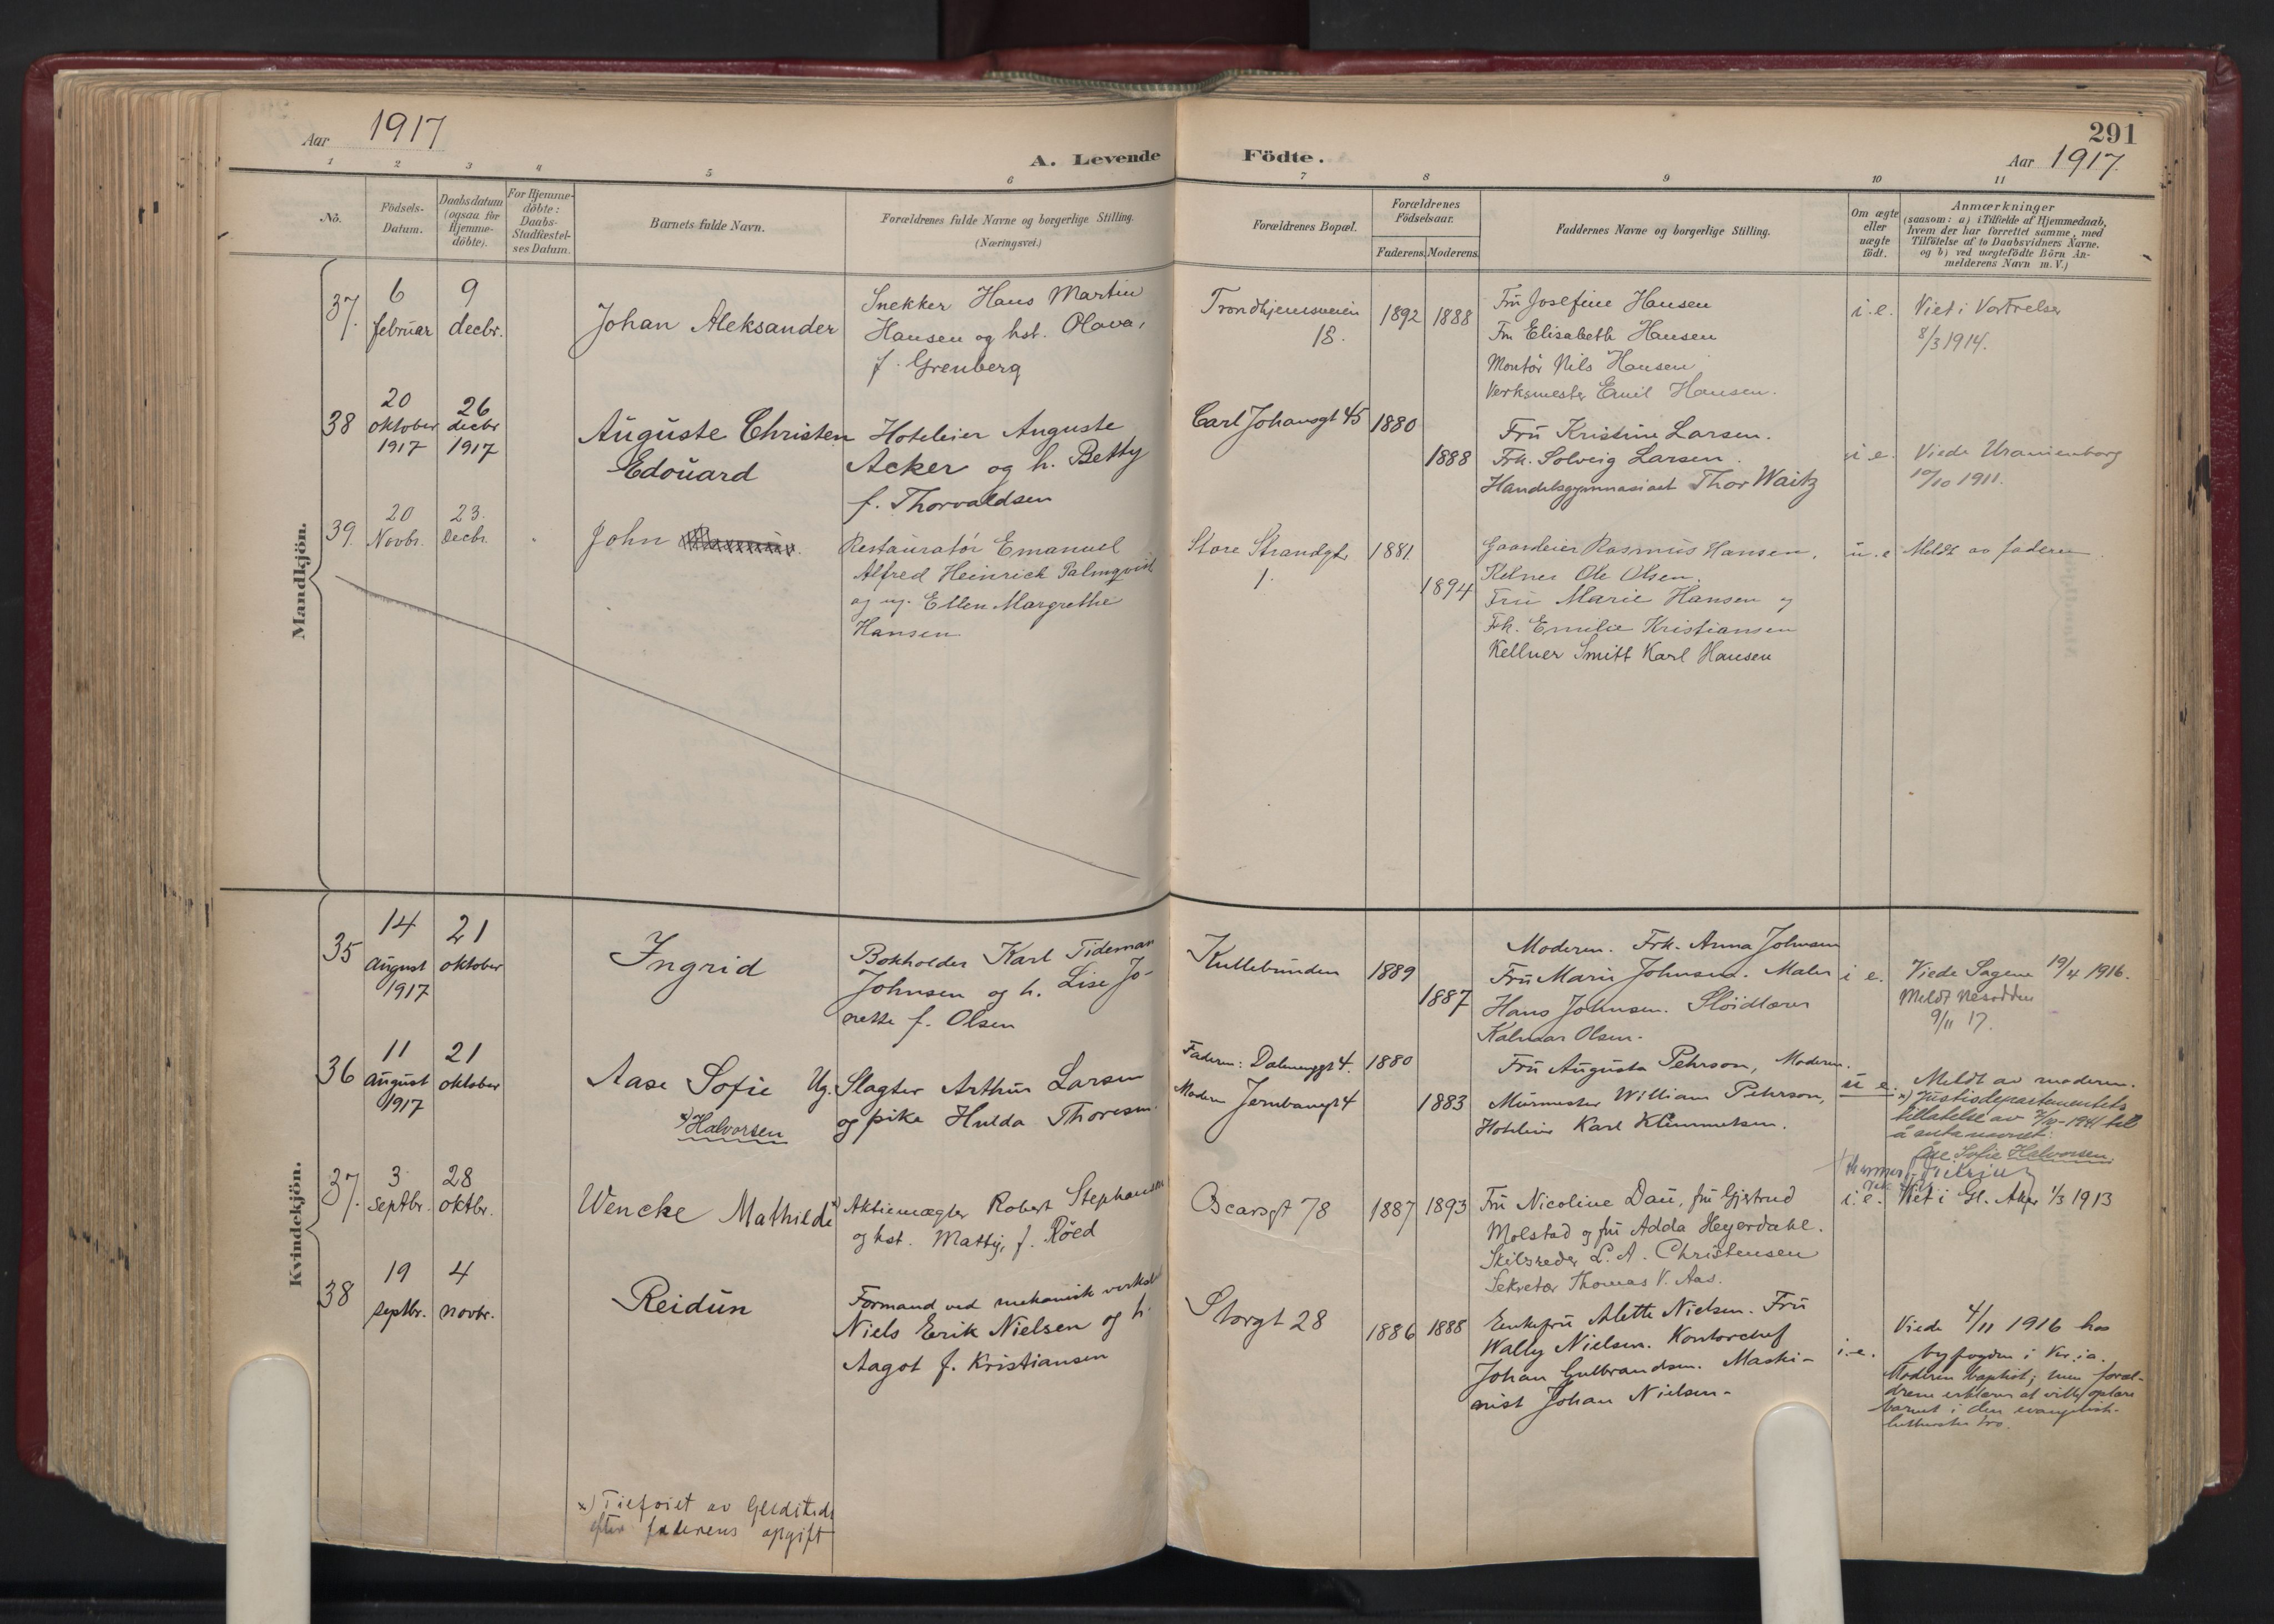 Aar 1917
A. Levende
1 2 3 4 5 6
No.
Födsels-
Datum.
Daabsdatum
(ogsaa for
Hjemme-
döbte).
For Hjemme-
döbte:
Daabs-
Stadfæstel-
ses Datum.
Barnets fulde Navn.
Forældrenes fulde Navne og borgerlige Stilling.
(Næringsvei.)
291
Födte.
Aar 1917.
7 8 9 10 11
Forældrenes Bopæl.
Forældrenes
Födselsaar.
Faderens. Moderens.
Faddernes Navne og borgerlige Stilling.
Om ægte
eller
uægte
födt.
Anmærkninger
(saasom: a) i Tilfælde af Hjemmedaab,
hvem der har forrettet samme, med
Tilföielse af to Daabsvidners Navne.
og b) ved uægtefödte Börn An-
melderens Navn m. V.)
Mandkjön.
37.
6
februar
9
decbr.
Johan Aleksander
Snekker Hans Martin
Hansen og hst. Olava,
f. Grenberg
Trondhjemsveien
18.
1892 1888
Fru Josefine Hansen
Fru Elisabeth Hansen
Montør Nils Hansen
Verksmester Emil Hansen.
i.e.
Viet i Vor Frelser
8/3 1914.
38
20
oktober
1917
26
decbr
1917
Auguste Christen
Edouard
Hoteleier Auguste
Acker og h. Betty
f. Thorvaldsen
Carl Johansgt 45
1880
1888
Fru Kristine Larsen.
Frk. Solveig Larsen.
Handelsgymnasiast Thor Waitz
i e.
Viede Uranienborg
10/10 1911.
39.
20
Novbr.
23.
Decbr.
John
Restauratør Emanuel
Alfred Heinrich Palmqvist
og ug. Ellen Margrethe
Hansen
Store Strandgt.
1.
1881.
1894
Gaardeier Rasmus Hansen,
Kelner Ole Olsen.
Fru Marie Hansen og
Frk. Emilie Kristiansen
Kellner Smitt Karl Hansen
u. e
Meldt av faderen.
Kvindekjön.
35
14
August
1917
21
oktober
Ingrid
Bokholder Karl Tideman
Johnsen og h. Lise Jo-
nette f. Olsen
Kullebunden
1889
1887
Moderen. Frk. Anna Johnsen
Fru Marie Johnsen. Maler
Hans Johnsen. Sløidlærer
Kalmar Olsen.
i e.
Viede Sagene 19/4 1916.
Meldt Nesodden
9/11 17.
36
11
August
1917
21
oktober
Aase Sofie
x) Halvorsen
Ug. Slagter Arthur Larsen
og pike Hulda Thoresen.
Faderen: 4.
Moderen Jernbanegt 4
1880
1883
Fru Augusta Pehrson, Moderen.
Murmester William Pehrson,
Hoteleier Karl Klemmetsen.
u e.
Meldt av moderen.
x) Justisdepartementets
tillatelse av 1941 til
å anta navnet:
Åse Sofie Halvorsen.
37.
3
Septbr.
28
oktbr.
Wencke Mathilde x)
Aktiemægler Robert Stephansen
og hst. Matty, f. Röed
Oscarsgt 78
1887 1893
Fru Nicoline Dau, fru Gjertrud
Molstad og fru Adda Heyerdahl.
Skibsreder L. A. Christensen
Sekretær Thomas V. Aas.
i. e.
Viet i Gl. Aker 1/3 1913
38
19
septbr.
4
novbr.
Reidun
Formand ved mekanisk verksted
Niels Erik Nielsen og h.
Aagot f. Kristiansen
Storgt 28
1886 1888
Enkefru Alette Nielsen. Fru
Wally Nielsen. Kontorchef
Johan Gulbrandsen. Maski-
nist Johan Nielsen.
i. e.
Viede 4/11 1916 hos
byfogden i Kr.ia.
Moderen baptist; men foræl-
drene erklærer at ville oplære
barnet i den evangelisk-
lutherske tro.
x) Tilføiet av
efter faderens opgift